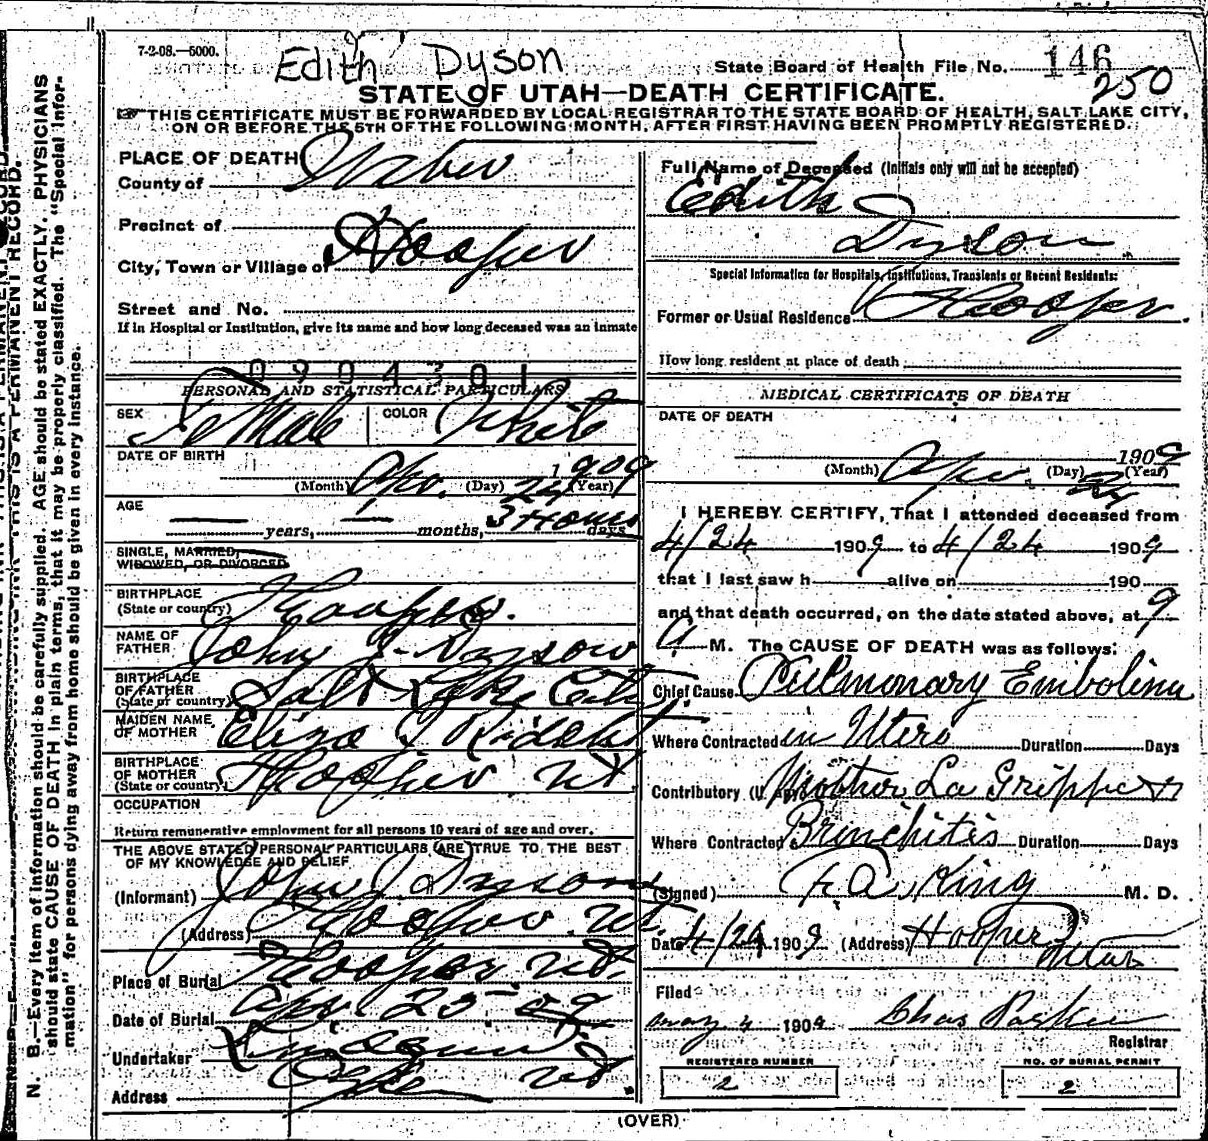 7-2-08.—5000.
Edith Dyson
State Board of Health File No. 146
250
STATE OF UTAH—DEATH CERTIFICATE.
THIS CERTIFICATE MUST BE FORWARDED BY LOCAL REGISTRAR TO THE STATE BOARD OF HEALTH, SALT LAKE CITY,
ON OR BEFORE THE 5TH OF THE FOLLOWING MONTH, AFTER FIRST HAVING BEEN PROMPTLY REGISTERED.
PLACE OF DEATH
County of Weber
Precinct of
City, Town or Village of Hooper
Street and No.
If in Hospital or Institution, give its name and how long deceased was an inmate
0904301
PERSONAL AND STATISTICAL PARTICULARS
SEX Female COLOR White
DATE OF BIRTH
(Month) Apr. (Day) 24 (Year) 1909
AGE
— years, — months, 3 Hours days
SINGLE, MARRIED,
WIDOWED, OR DIVORCED
BIRTHPLACE
(State or country) Hooper.
NAME OF
FATHER John J. Dyson
BIRTHPLACE
OF FATHER
(State or country) Salt Lake City
MAIDEN NAME
OF MOTHER Eliza J.
BIRTHPLACE
OF MOTHER
(State or country) Hooper Ut.
OCCUPATION
Return remunerative employment for all persons 10 years of age and over.
THE ABOVE STATED PERSONAL PARTICULARS ARE TRUE TO THE BEST
OF MY KNOWLEDGE AND BELIEF
(Informant) John J. Dyson
(Address) Hooper Ut.
Place of Burial Hooper Ut.
Date of Burial Apr 25-09
Undertaker
Address Ogden Ut.
Full Name of Deceased (Initials only will not be accepted)
Edith
Dyson
Special Information for Hospitals, Institutions, Transients or Recent Residents:
Former or Usual Residence Hooper.
How long resident at place of death
MEDICAL CERTIFICATE OF DEATH
DATE OF DEATH
(Month) Apr. (Day) 24 1909 (Year)
I HEREBY CERTIFY, That I attended deceased from
4/24 1909 to 4/24 1909
that I last saw h alive on 190
and that death occurred, on the date stated above, at 9
A M. The CAUSE OF DEATH was as follows:
Chief Cause Pulmonary Embolism
Where Contracted in Utero Duration Days
Contributory Mother La Grippe &
Where Contracted Brinchitis Duration Days
(Signed) F. A. King M. D.
Date 4/24 1909 (Address) Hooper Utah
Filed
May 4 1909 Chas Parker
Registrar
REGISTERED NUMBER
2
NO. OF BURIAL PERMIT
2
(OVER)
N. B.—Every item of information should be carefully supplied. AGE should be stated EXACTLY. PHYSICIANS
should state CAUSE OF DEATH in plain terms, that it may be properly classified. The "Special Infor-
mation" for persons dying away from home should be given in every instance.